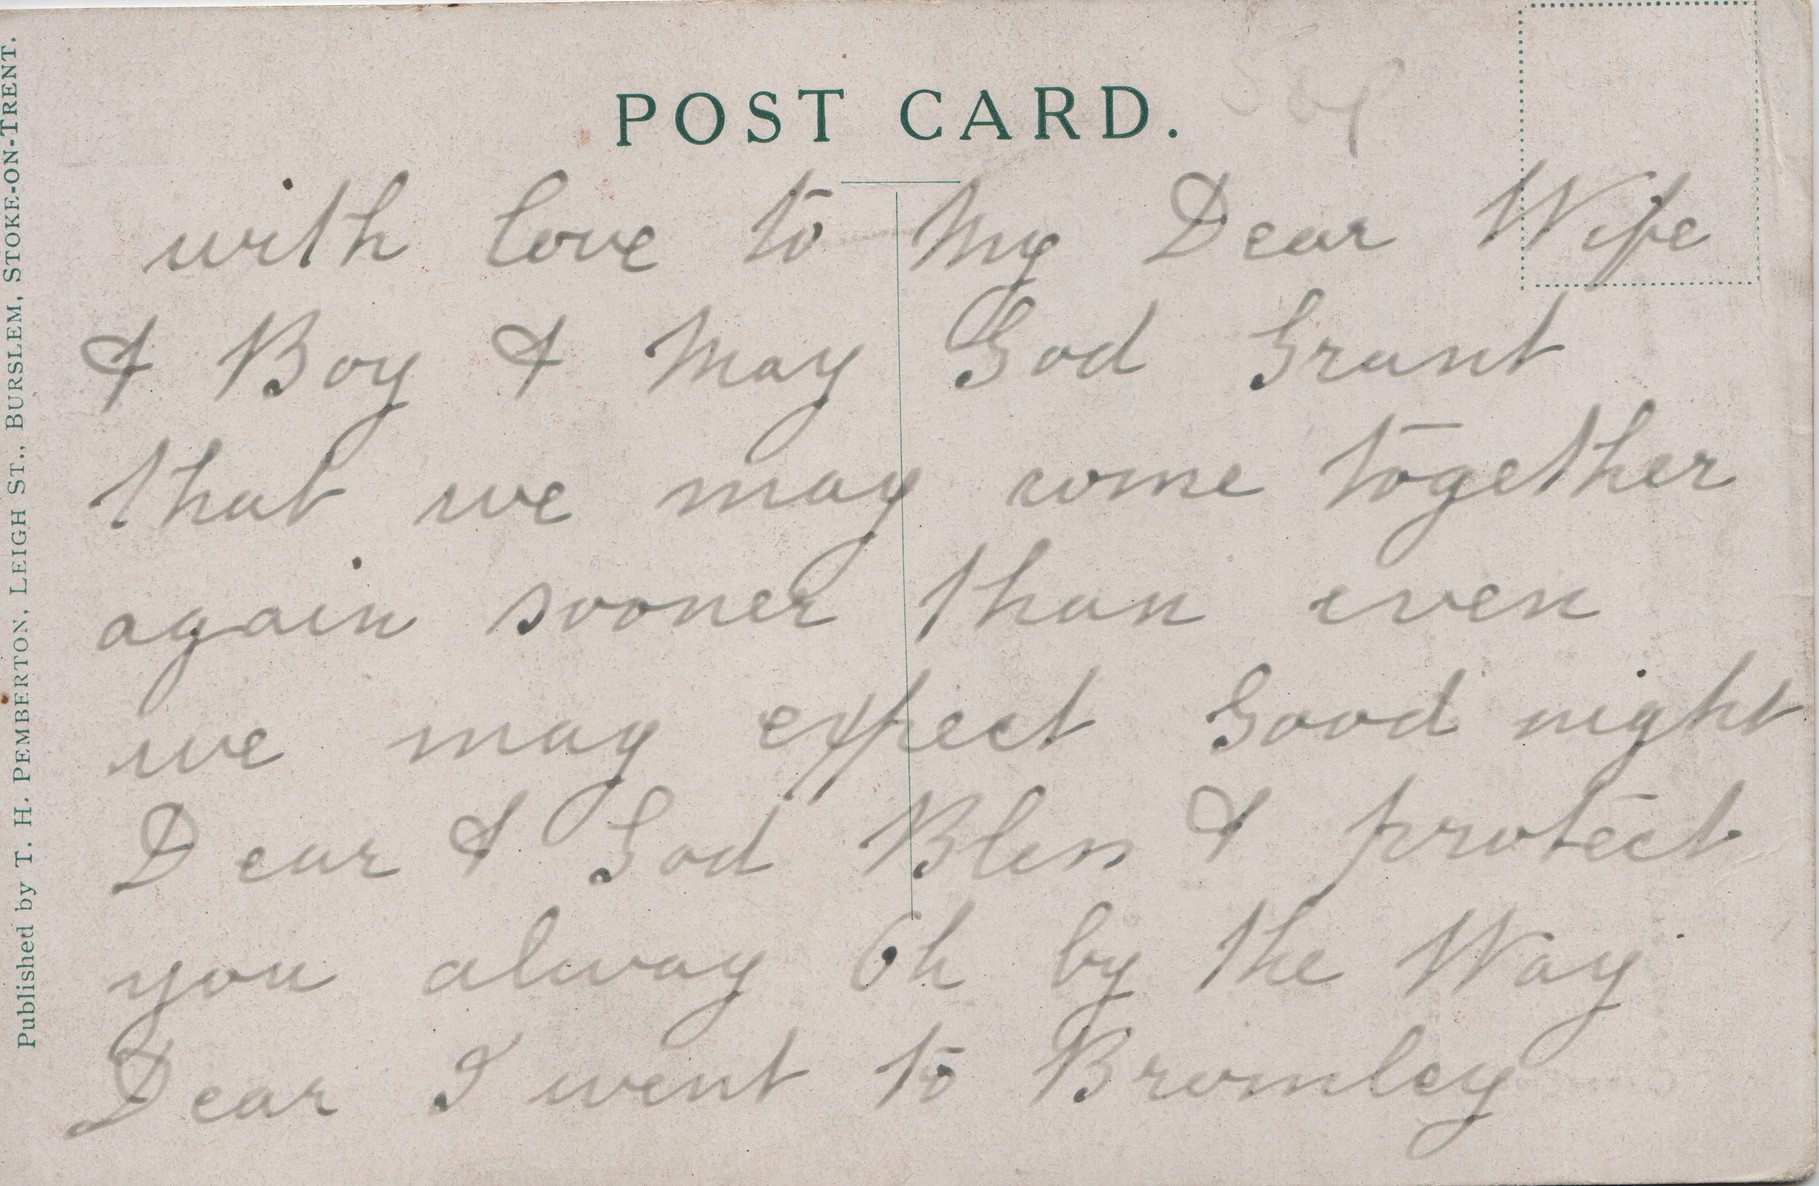 POST CARD.
with love to My Dear Wife
& Boy & May God Grant
that we may come together
again sooner than even
we may expect Good night
Dear & God Bless & protect
you alway Oh by the Way
Dear I went to Bromley
Published by T. H. PEMBERTON, LEIGH ST., BURSLEM, STOKE-ON-TRENT.